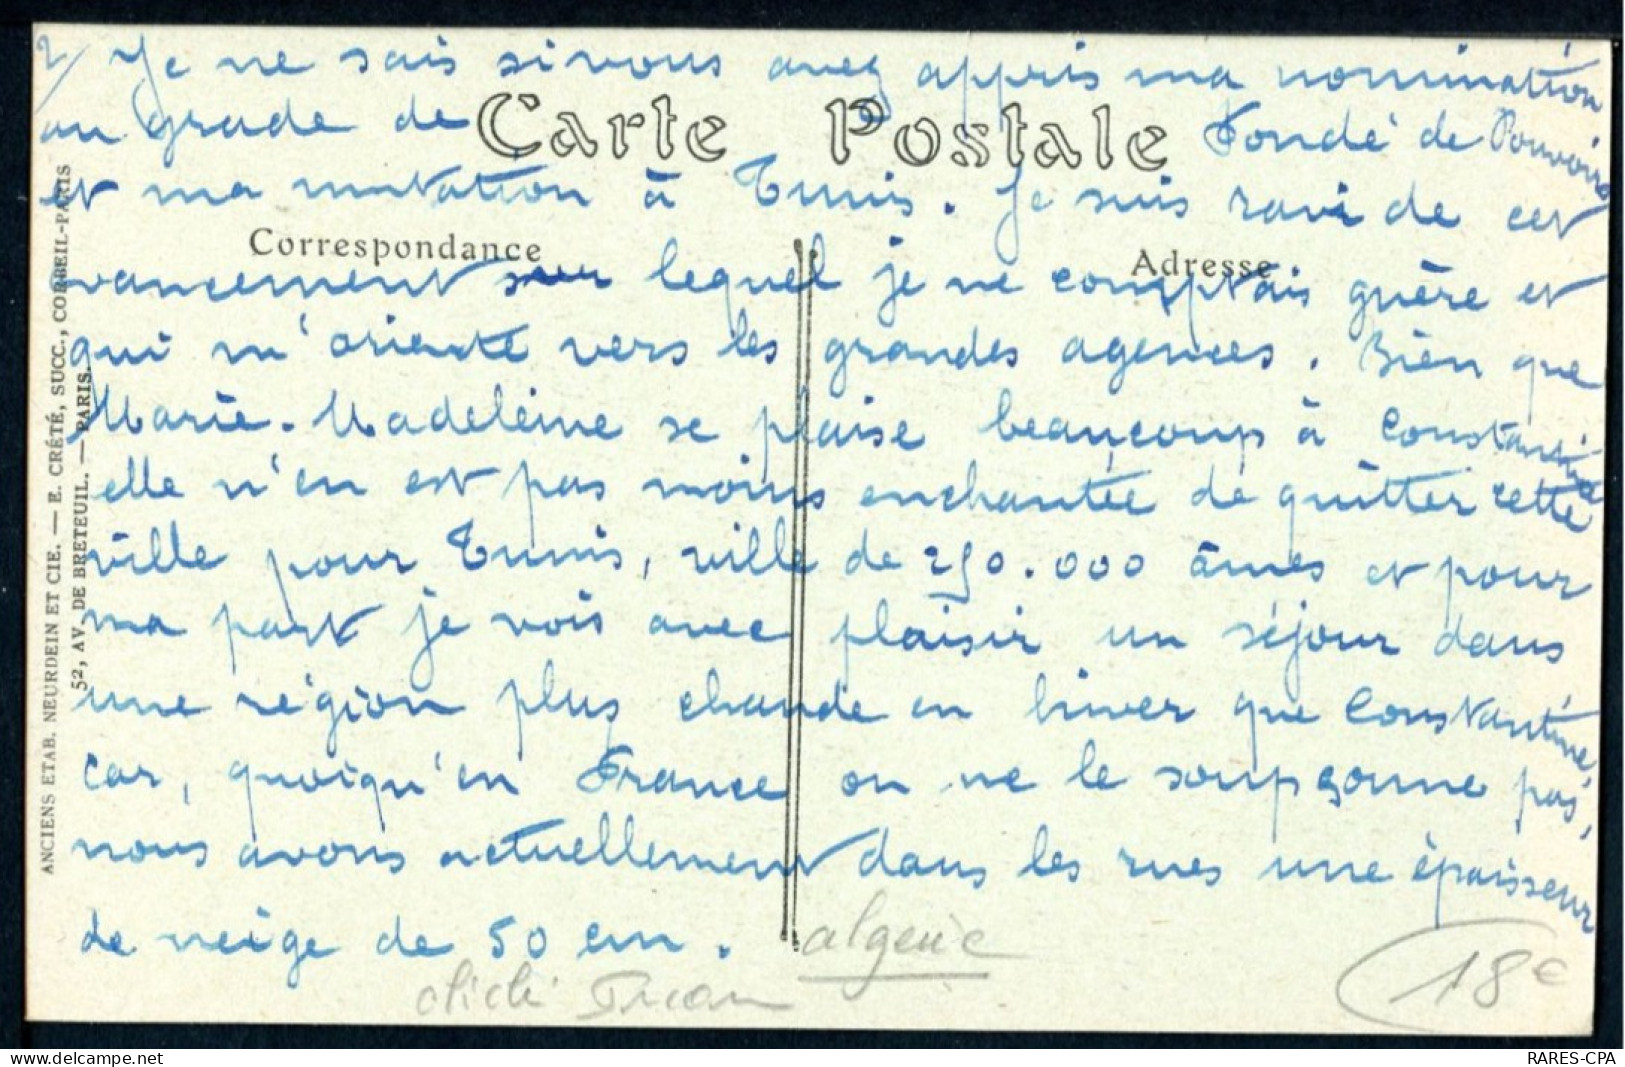 2/ Je ne sais si vous avez appris ma nomination
au grade de Fondé de Pouvoirs
Carte Postale
et ma mutation à Tunis. Je suis ravi de cet
Correspondance
Adresse
avancement sur lequel je ne comptais guère et
qui m'oriente vers les grandes agences. Bien que
Marie-Madeleine se plaise beaucoup à Constantine
elle n'en est pas moins enchantée de quitter cette
ville pour Tunis, ville de 250.000 âmes et pour
ma part je vois avec plaisir un séjour dans
une région plus chaude en hiver que Constantine,
car, quoiqu'en France on ne le soupçonne pas,
nous avons actuellement dans les rues une épaisseur
de neige de 50 cm.
algerie
cliché
18€
ANCIENS ETAB. NEURDEIN ET CIE. — E. CRÉTÉ, SUCC., CORBEIL-PARIS
52, AV. DE BRETEUIL. — PARIS.
www.delcampe.net
RARES-CPA